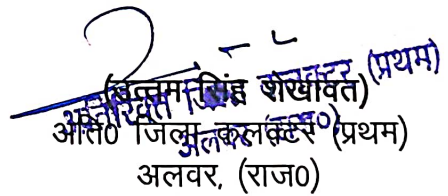 (उत्तम सिंह शेखावत)
अति0 जिला कलक्टर (प्रथम)
अलवर, (राज0)
अतिरिक्त जिला कलक्टर (प्रथम)
अलवर (राज0)